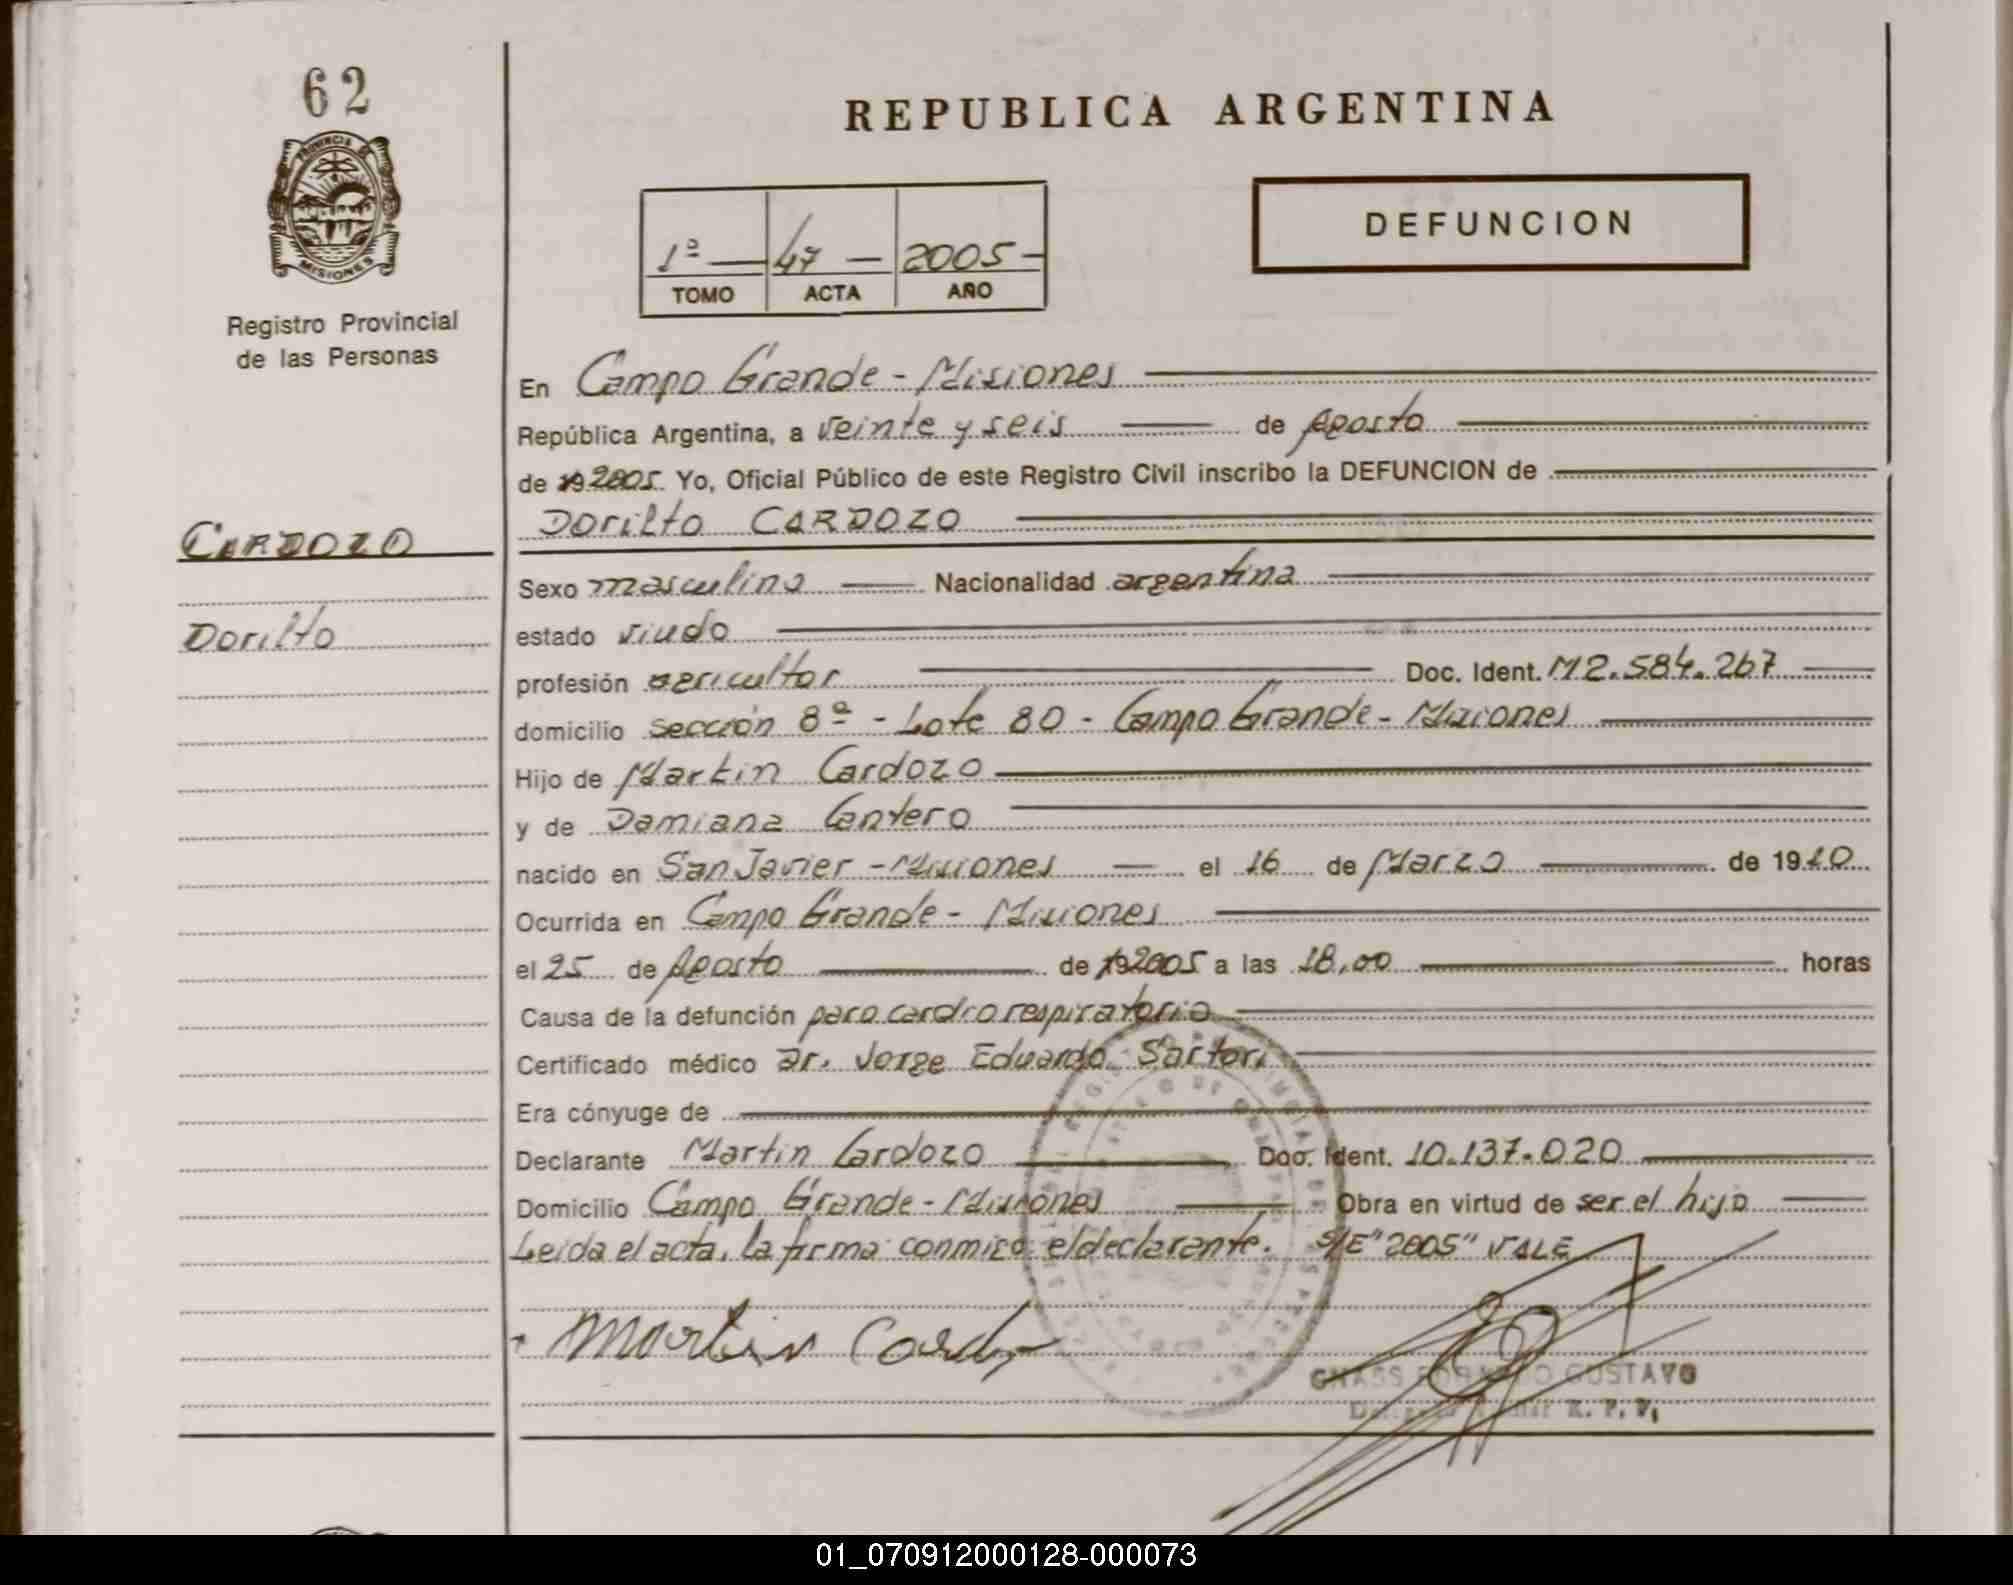 62
PROVINCIA DE
MISIONES
Registro Provincial
de las Personas
REPUBLICA ARGENTINA
1º — 47 — 2005 -
TOMO ACTA AÑO
DEFUNCION
En Campo Grande - Misiones
República Argentina, a veinte y seis de Agosto
de 19 2005. Yo, Oficial Público de este Registro Civil inscribo la DEFUNCION de
Dorilto CARDOZO
CARDOZO
Dorilto
Sexo masculino Nacionalidad argentina
estado viudo
profesión agricultor Doc. Ident. M2.584.267
domicilio sección 8ª - Lote 80 - Campo Grande - Misiones
Hijo de Martin Cardozo
y de Damiana Cantero
nacido en San Javier - Misiones el 16 de Marzo de 1920
Ocurrida en Campo Grande - Misiones
el 25 de Agosto de 19 2005 a las 18,00 horas
Causa de la defunción paro cardiorespiratorio
Certificado médico Dr. Jorge Eduardo Sartori
Era cónyuge de
Declarante Martin Cardozo Doc. Ident. 10.137.020
Domicilio Campo Grande - Misiones Obra en virtud de ser el hijo
Leida el acta, la firma conmigo el declarante. S/E "2005" VALE
Martin Cardozo
GUSTAVO
R. P. P.
01_070912000128-000073